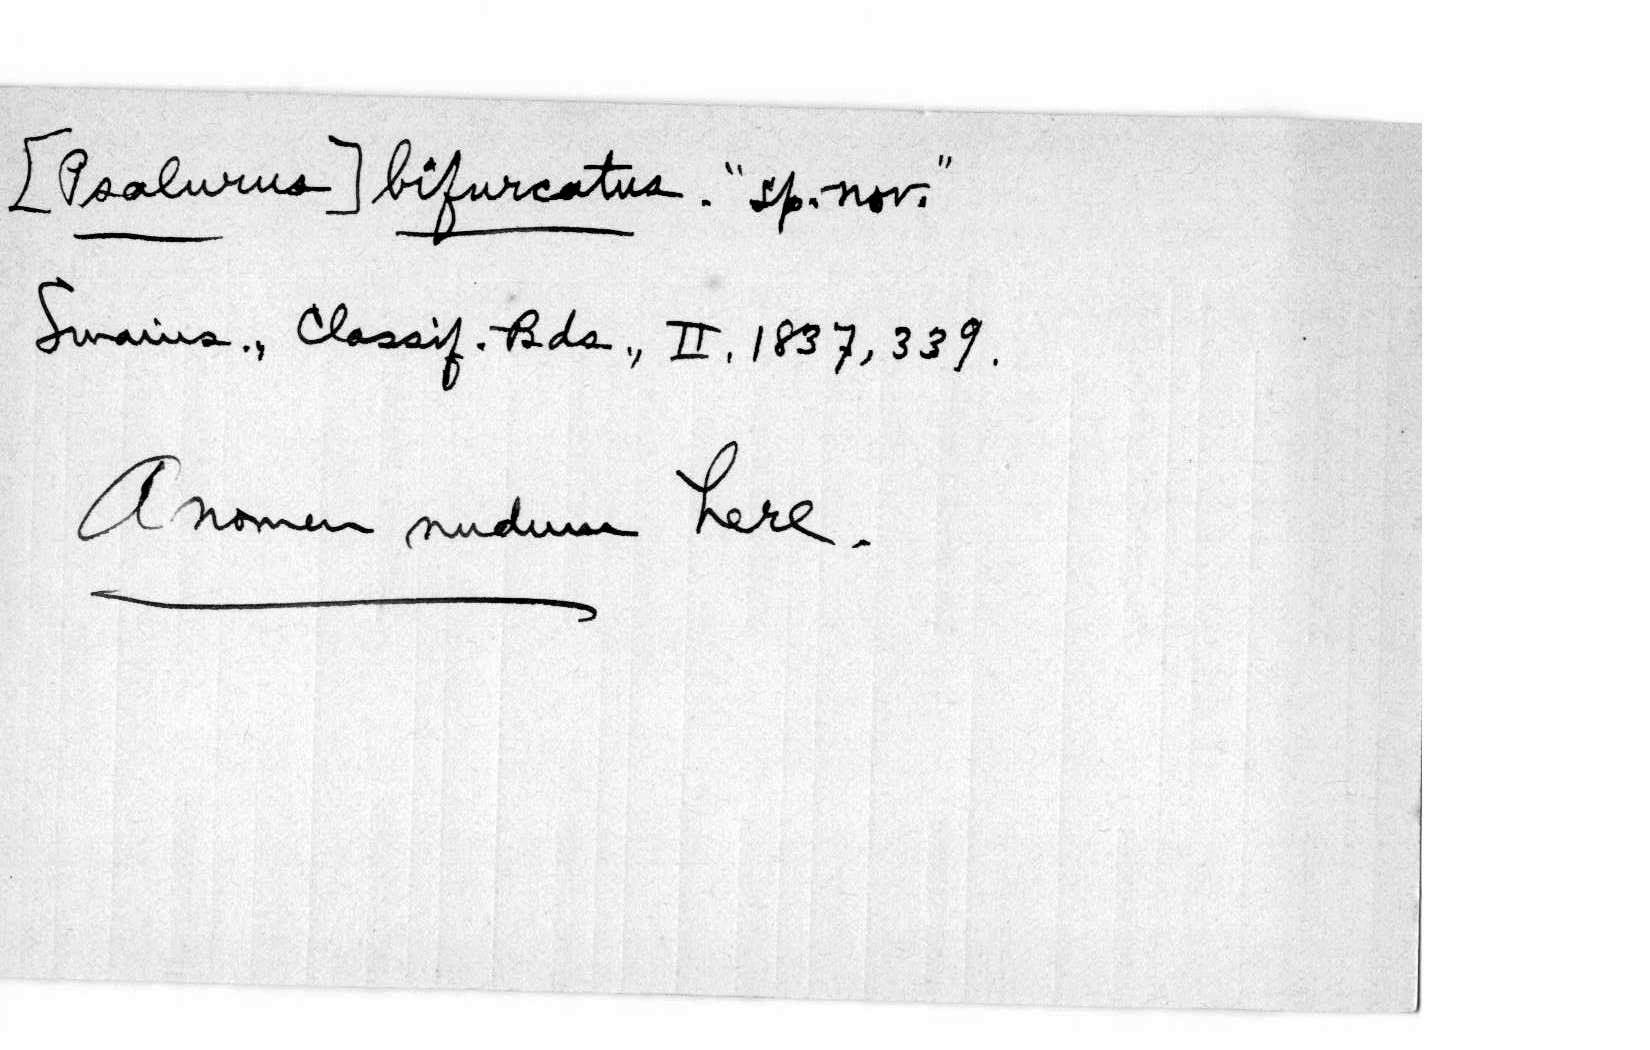 [Psalurus] bifurcatus. "sp. nov."
Swains., Classif. Bds., II, 1837, 339.
A nomen nudum here.